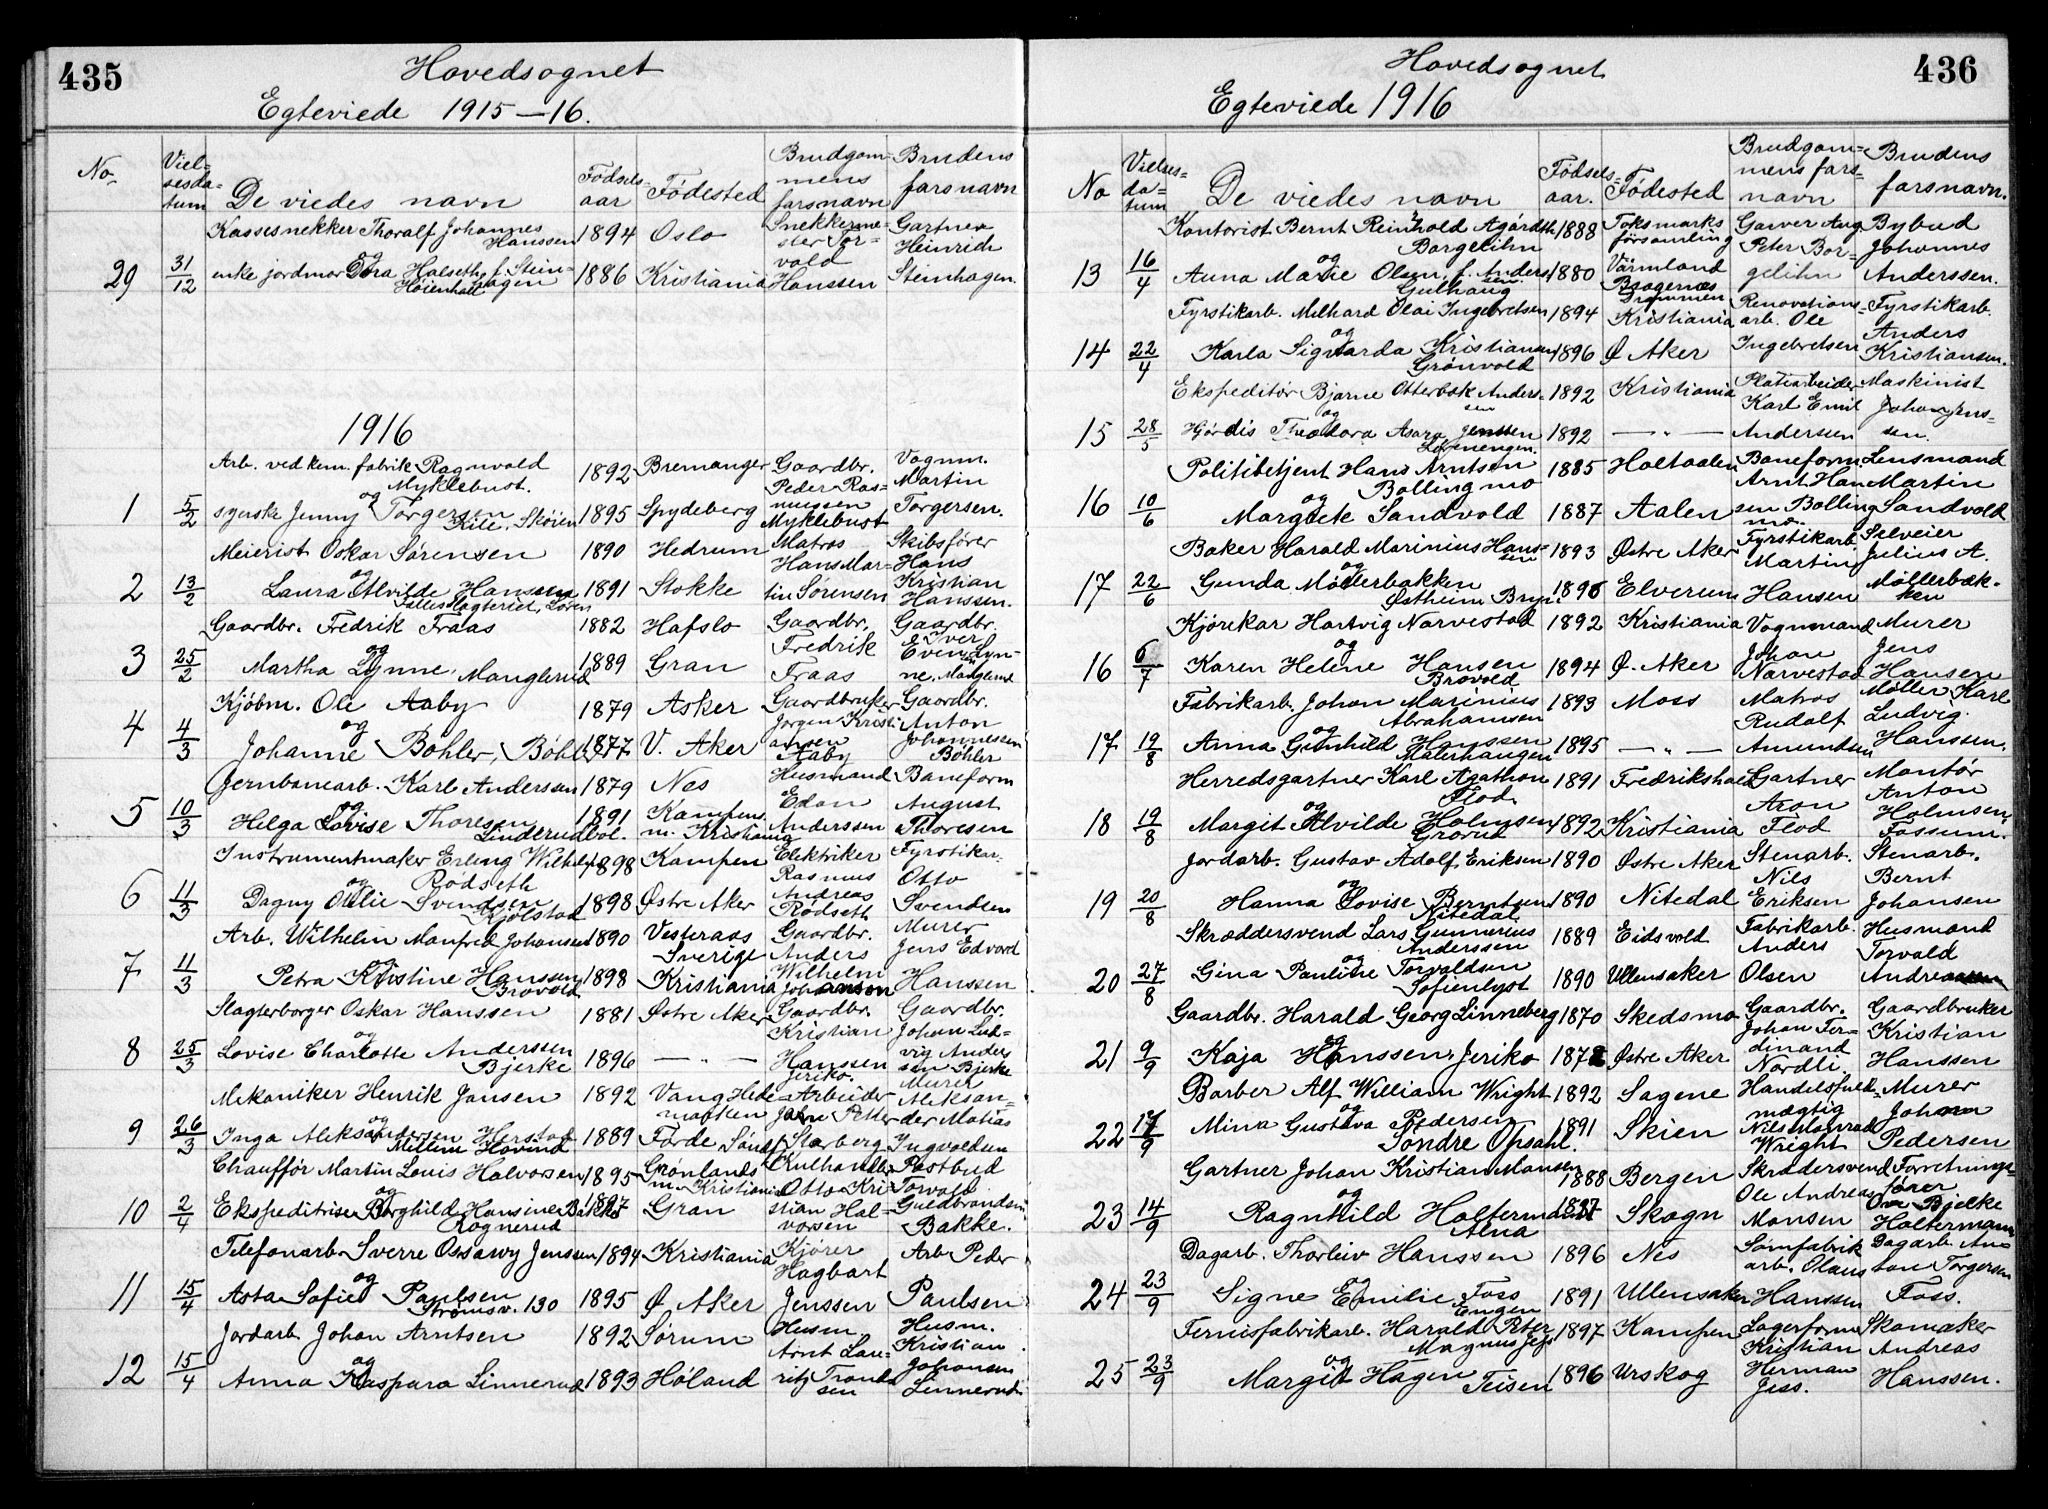 435
Hovedsognet
Egteviede 1915—16.
No
Viel-
sesda-
tum
De viedes navn
Fødsels-
aar
Fødested
Brudgom-
mens
farsnavn
Brudens
farsnavn
Kassesnekker Thoralf Johannes
Hanssen
1894
Oslo
Snekkerme-
ster Tor-
vald
Hanssen
Gartner
Heinrich
Stenhagen.
29
31/12
og
enke jordmor Dora Halseth, f. Stein-
hagen
Høienhall
1886
Kristiania
1916
1
5/2
Arb. ved kem. fabrik Ragnvald
Myklebust.
og
syerske Jenny Torgersen
Kile, Skøien
1892
1895
Bremanger
Spydeberg
Gaardbr.
Peder Ras-
mussen
Myklebust
Vognm.
Martin
Torgersen.
2
13/2
Meierist Oskar Sørensen
og
Laura Alvilde Hanssen
Fællesslagteriet, Løren
1890
1891
Hedrum
Stokke
Matros
Hans Mar-
tin Sørensen
Skibsfører
Hans
Kristian
Hanssen.
3
25/2
Gaardbr. Fredrik Fraas
og
Martha Lynne, Manglerud
1882
1889
Hafslo
Gran
Gaardbr.
Fredrik
Fraas
Gaardbr.
Iver
Evensen Lyn-
ne, Manglerud
4
4/3
Kjøbm. Ole Aaby
og
Johanne Bøhler, Bøhler
1879
1877
Asker
V. Aker
Gaardbruker
Jørgen Kristi-
ansen
Aaby
Gaardbr.
Anton
Johannessen
Bøhler
5
10/3
Jernbanearb. Karl Anderssen
og
Helga Lovise Thoresen
Linderudkol.
1879
1891
Nes
Kampens
m. Kristiania
Husmand
Edon
Anderssen
Baneform
August
Thoresen
6
11/3
Instrumentmaker Erling Wilhelm
Rødseth
og
Dagny Otilie Svendsen
Kjølstad
1898
1898
Kampen
Østre Aker
Elektriker
Rasmus
Andreas
Rødseth
Fyrstikar.
Otto
Svendsen
7
11/3
Arb. Wilhelm Manfred Johansen
og
Petra Kristine Hanssen
Brovold
1890
1898
Vesteraas
Sverige
Kristiania
Gaardbr.
Anders
Wilhelm
Johansson
Murer
Jens Edvard
Hanssen
8
25/3
Slagterborger Oskar Hanssen
og
Lovise Charlotte Anderssen
Bjerke
1881
1896
Østre Aker
— „ —
Gaardbr.
Kristian
Hanssen
Jeriko.
Gaardbr.
Johan Lud-
vig Anders
sen Bjerke
9
26/3
Mekaniker Henrik Jansen
og
Inga Aleksandersen Herstad
Millem Hovind
1892
1889
Vang Hede-
marken
Førde Søndf.
Arbeider
John Petter
Starberg
Murer
Aleksan-
der Matias
Ingvoldsen
10
2/4
Chauffør Martin Louis Halvorsen
og
Ekspeditrise Borghild Hansine Bakke
Rognerud
1895
1897
Grønlands
m. Kristiania
Gran
Kulhandler
Otto Kri-
stian Hal-
vorsen
Postbud
Torvald
Guldbrandsen
Bakke.
11
15/4
Telefonarb. Sverre Ossawy Jenssen
og
Asta Sofie Paulsen
Strømsv. 130
1894
1895
Kristiania
Ø Aker
Kjører
Hagbart
Jenssen
Arb. Peder
Paulsen
12
15/4
Jordarb. Johan Arntsen
og
Anna Kaspara Linnerud
1892
1893
Sørum
Høland
Husm.
Arnt Lau-
ritz Trond-
sen
Husm.
Kristian
Johansen
Linnerud.
436
Hovedsognet
Egteviede 1916
No
Vielses-
da-
tum
De viedes navn
Fødsels-
aar.
Fødested
Brudgom-
mens fars-
navn
Brudens
farsnavn.
13
16/4
Kontorist Bernt Reinhold Agardth
Borgelihn
og
Anna Marie Olsen, f. Anders
sen.
Gulhaug
1888
1880
Foksmarks
forsamling
Värmland
Bragernes
Drammen
Garver Aug
Peter Bor-
gelihn
Bybud
Johannes
Anderssen.
14
22/4
Fyrstikarb. Milhard Olai Ingebretsen
og
Karla Sigvarda Kristiansen
Grønvold
1894
1896
Kristiania
Ø Aker
Renovations-
arb. Ole
Ingebretsen
Fyrstikarb.
Anders
Kristiansen.
15
28/5
Ekspeditør Bjarne Otterbæk Anders-
sen
og
Hjørdis Theodora Asara Jenssen
1892
1892
Kristiania
— „ —
Platearbeider
Karl Emil
Andersen
Maskinist
Johan Jens-
sen.
16
10/6
Politibetjent Hans Arntsen
Bollingmo
og
Margrete Sandvold
1885
1887
Holtaalen
Aalen
Baneform
Arnt Han
sen Bolling
mo.
Lensmand
Martin
Sandvold
17
22/6
Baker Harald Marinius Hans-
sen
og
Gunda Møllerbakken
Østheim Bryn.
1893
1896
Østre Aker
Elverum
Fyrstikarb.
Martin
Hansen
Selveier
Julius A.
Møllerbæk-
ken
16
6/7
Kjørekar Hartvig Narvestad
og
Karen Helene Hansen
Brovold
1892
1894
Kristiania
Ø. Aker
Vognmand
Johan
Narvestad
Murer
Jens
Hansen
17
19/8
Fabrikarb. Johan Marinius
Abrahamsen
og
Anna Gunhild Hanssen
Malerhaugen
1893
1895
Moss
— „ —
Matros
Rudolf
Amundsen
Møller Karl
Ludvig
Hanssen.
18
19/8
Herredsgartner Karl Agathon
Flod
og
Margit Alvilde Holmsen
Grorud
1891
1892
Fredrikshald
Kristiania
Gartner
Aron
Flod
Montør
Anton
Holmsen,
Fossum.
19
20/8
Jordarb. Gustav Adolf Eriksen
og
Hanna Lovise Berntsen
Nitedal
1890
1890
Østre Aker
Nitedal
Stenarb.
Nils
Eriksen
Stenarb.
Bernt
Johansen
20
27/8
Skræddersvend Lars Gunnerius
Anderssen
og
Gina Pauline Torvaldsen
Sofienlyst
1889
1890
Eidsvold
Ullensaker
Fabrikarb.
Anders
Olsen
Husmand
Torvald
Andreassen
21
9/9
Gaardbr. Harald Georg Linneberg
og
Kaja Hanssen, Jeriko
1870
1872
Skedsmo
Østre Aker
Gaardbr.
Johan Fer-
dinand
Nordli
Gaardbruker
Kristian
Hanssen
22
17/9
Barber Alf William Wright
og
Mina Gustava Pedersen
Søndre Opsahl.
1892
1891
Sagene
Skien
Handelsfuld-
mægtig
Nils Konrad
Wright
Murer
Johan
Pedersen
23
14/9
Gartner Johan Kristian Monsen
og
Ragnhild Holtermann
Alna
1888
1887
Bergen
Skogn
Skræddersvend
Ole Andreas
Monsen
Forretnings-
fører
Ove Bjelke
Holtermann
24
23/9
Dagarb. Thorleiv Hanssen
og
Signe Emilie Foss
Engen
1896
1891
Nes
Ullensaker
Sømfabrik
arb. Olaus
Hanssen
Dagarb. An-
ton Torgersen
Foss.
25
23/9
Fernisfabrikarb. Harald Peter
Magnus Jess
og
Margit Hagen
Teisen
1897
1896
Kampen
Urskog
Lagerform
Kristian
Herman
Jess.
Skomaker
Andreas
Hanssen.